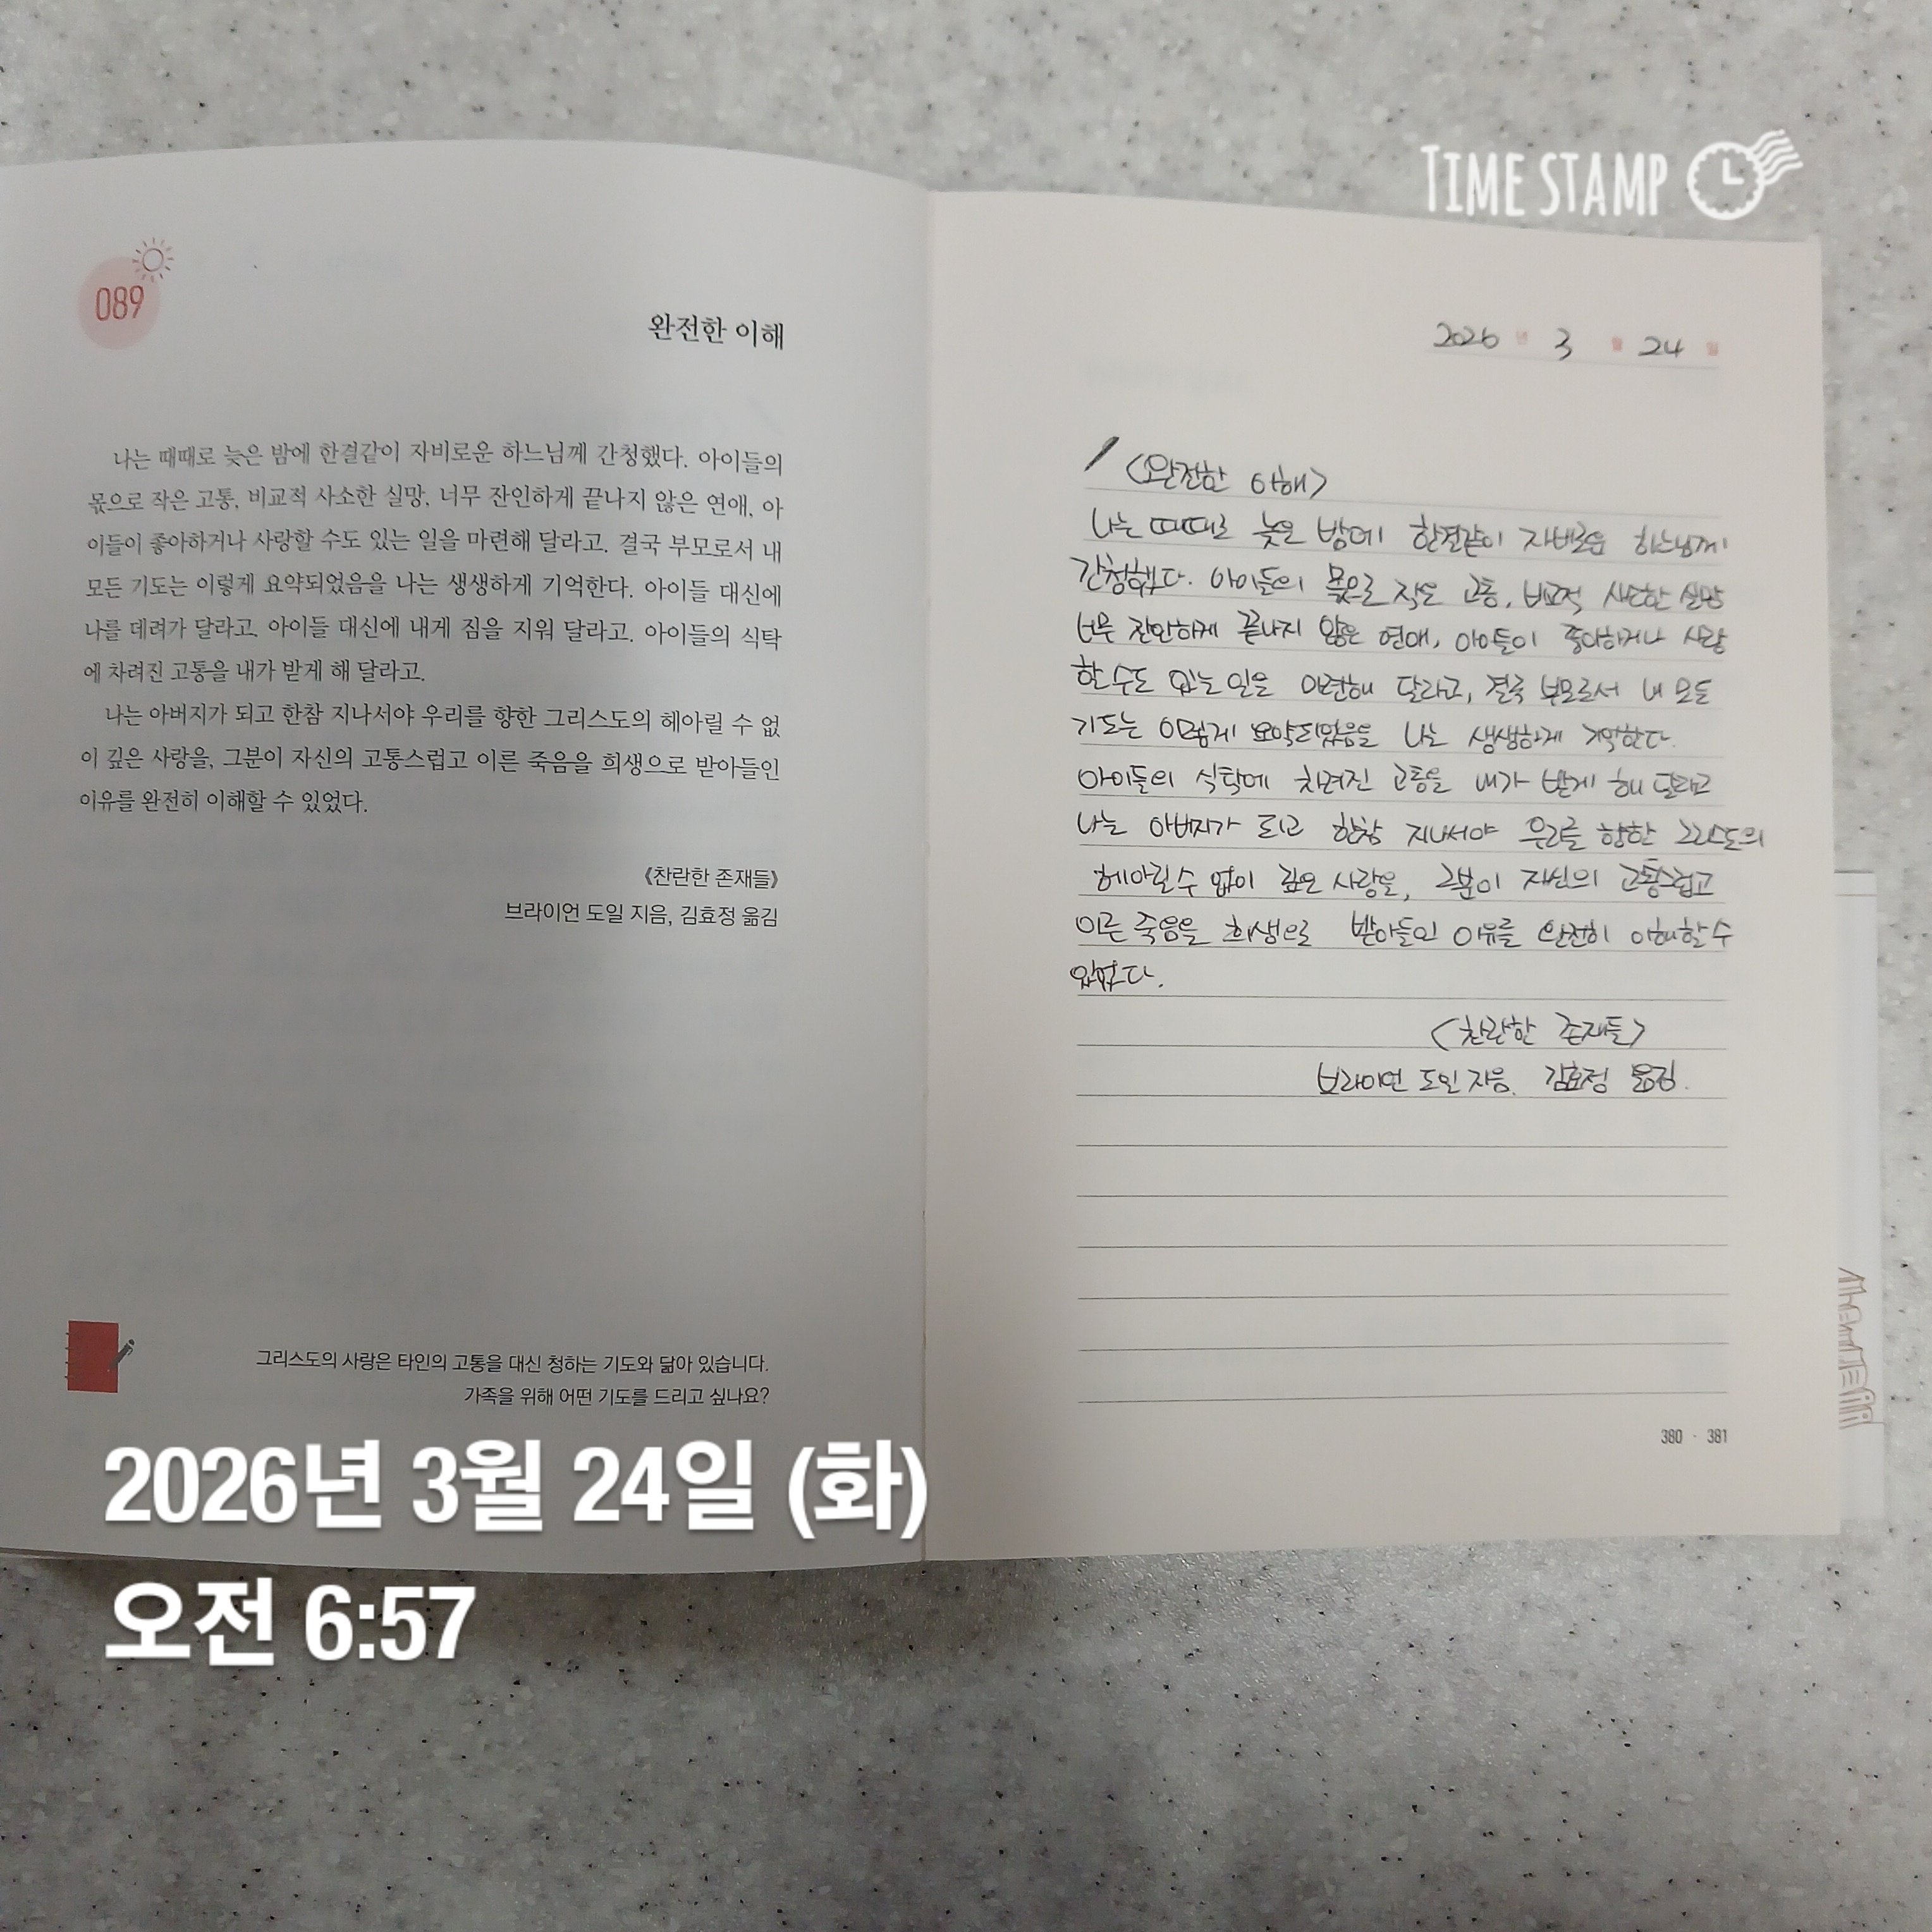 TIME STAMP
089
완전한 이해
나는 때때로 늦은 밤에 한결같이 자비로운 하느님께 간청했다. 아이들의
몫으로 작은 고통, 비교적 사소한 실망, 너무 잔인하게 끝나지 않은 연애, 아
이들이 좋아하거나 사랑할 수도 있는 일을 마련해 달라고. 결국 부모로서 내
모든 기도는 이렇게 요약되었음을 나는 생생하게 기억한다. 아이들 대신에
나를 데려가 달라고. 아이들 대신에 내게 짐을 지워 달라고. 아이들의 식탁
에 차려진 고통을 내가 받게 해 달라고.
나는 아버지가 되고 한참 지나서야 우리를 향한 그리스도의 헤아릴 수 없
이 깊은 사랑을, 그분이 자신의 고통스럽고 이른 죽음을 희생으로 받아들인
이유를 완전히 이해할 수 있었다.
《찬란한 존재들》
브라이언 도일 지음, 김효정 옮김
그리스도의 사랑은 타인의 고통을 대신 청하는 기도와 닮아 있습니다.
가족을 위해 어떤 기도를 드리고 싶나요?
2026 년 3 월 24 일
<완전한 이해>
나는 때때로 늦은 밤에 한결같이 자비로운 하느님께
간청했다. 아이들의 몫으로 작은 고통, 비교적 사소한 실망
너무 잔인하게 끝나지 않은 연애, 아이들이 좋아하거나 사랑
할 수도 있는 일을 마련해 달라고, 결국 부모로서 내 모든
기도는 이렇게 요약되었음을 나는 생생하게 기억한다.
아이들의 식탁에 차려진 고통을 내가 받게 해 달라고
나는 아버지가 되고 한참 지나서야 우리를 향한 그리스도의
헤아릴 수 없이 깊은 사랑을, 그분이 자신의 고통스럽고
이른 죽음을 희생으로 받아들인 이유를 완전히 이해할 수
있었다.
<찬란한 존재들>
브라이언 도일 지음. 김효정 옮김.
380 · 381
2026년 3월 24일 (화)
오전 6:57